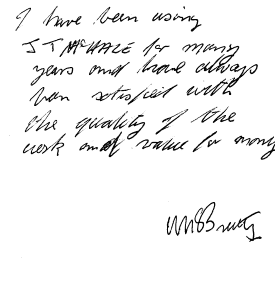 I have been using
J T McHALE for many
years and have always
been satisfied with
the quality of the
work and value for money